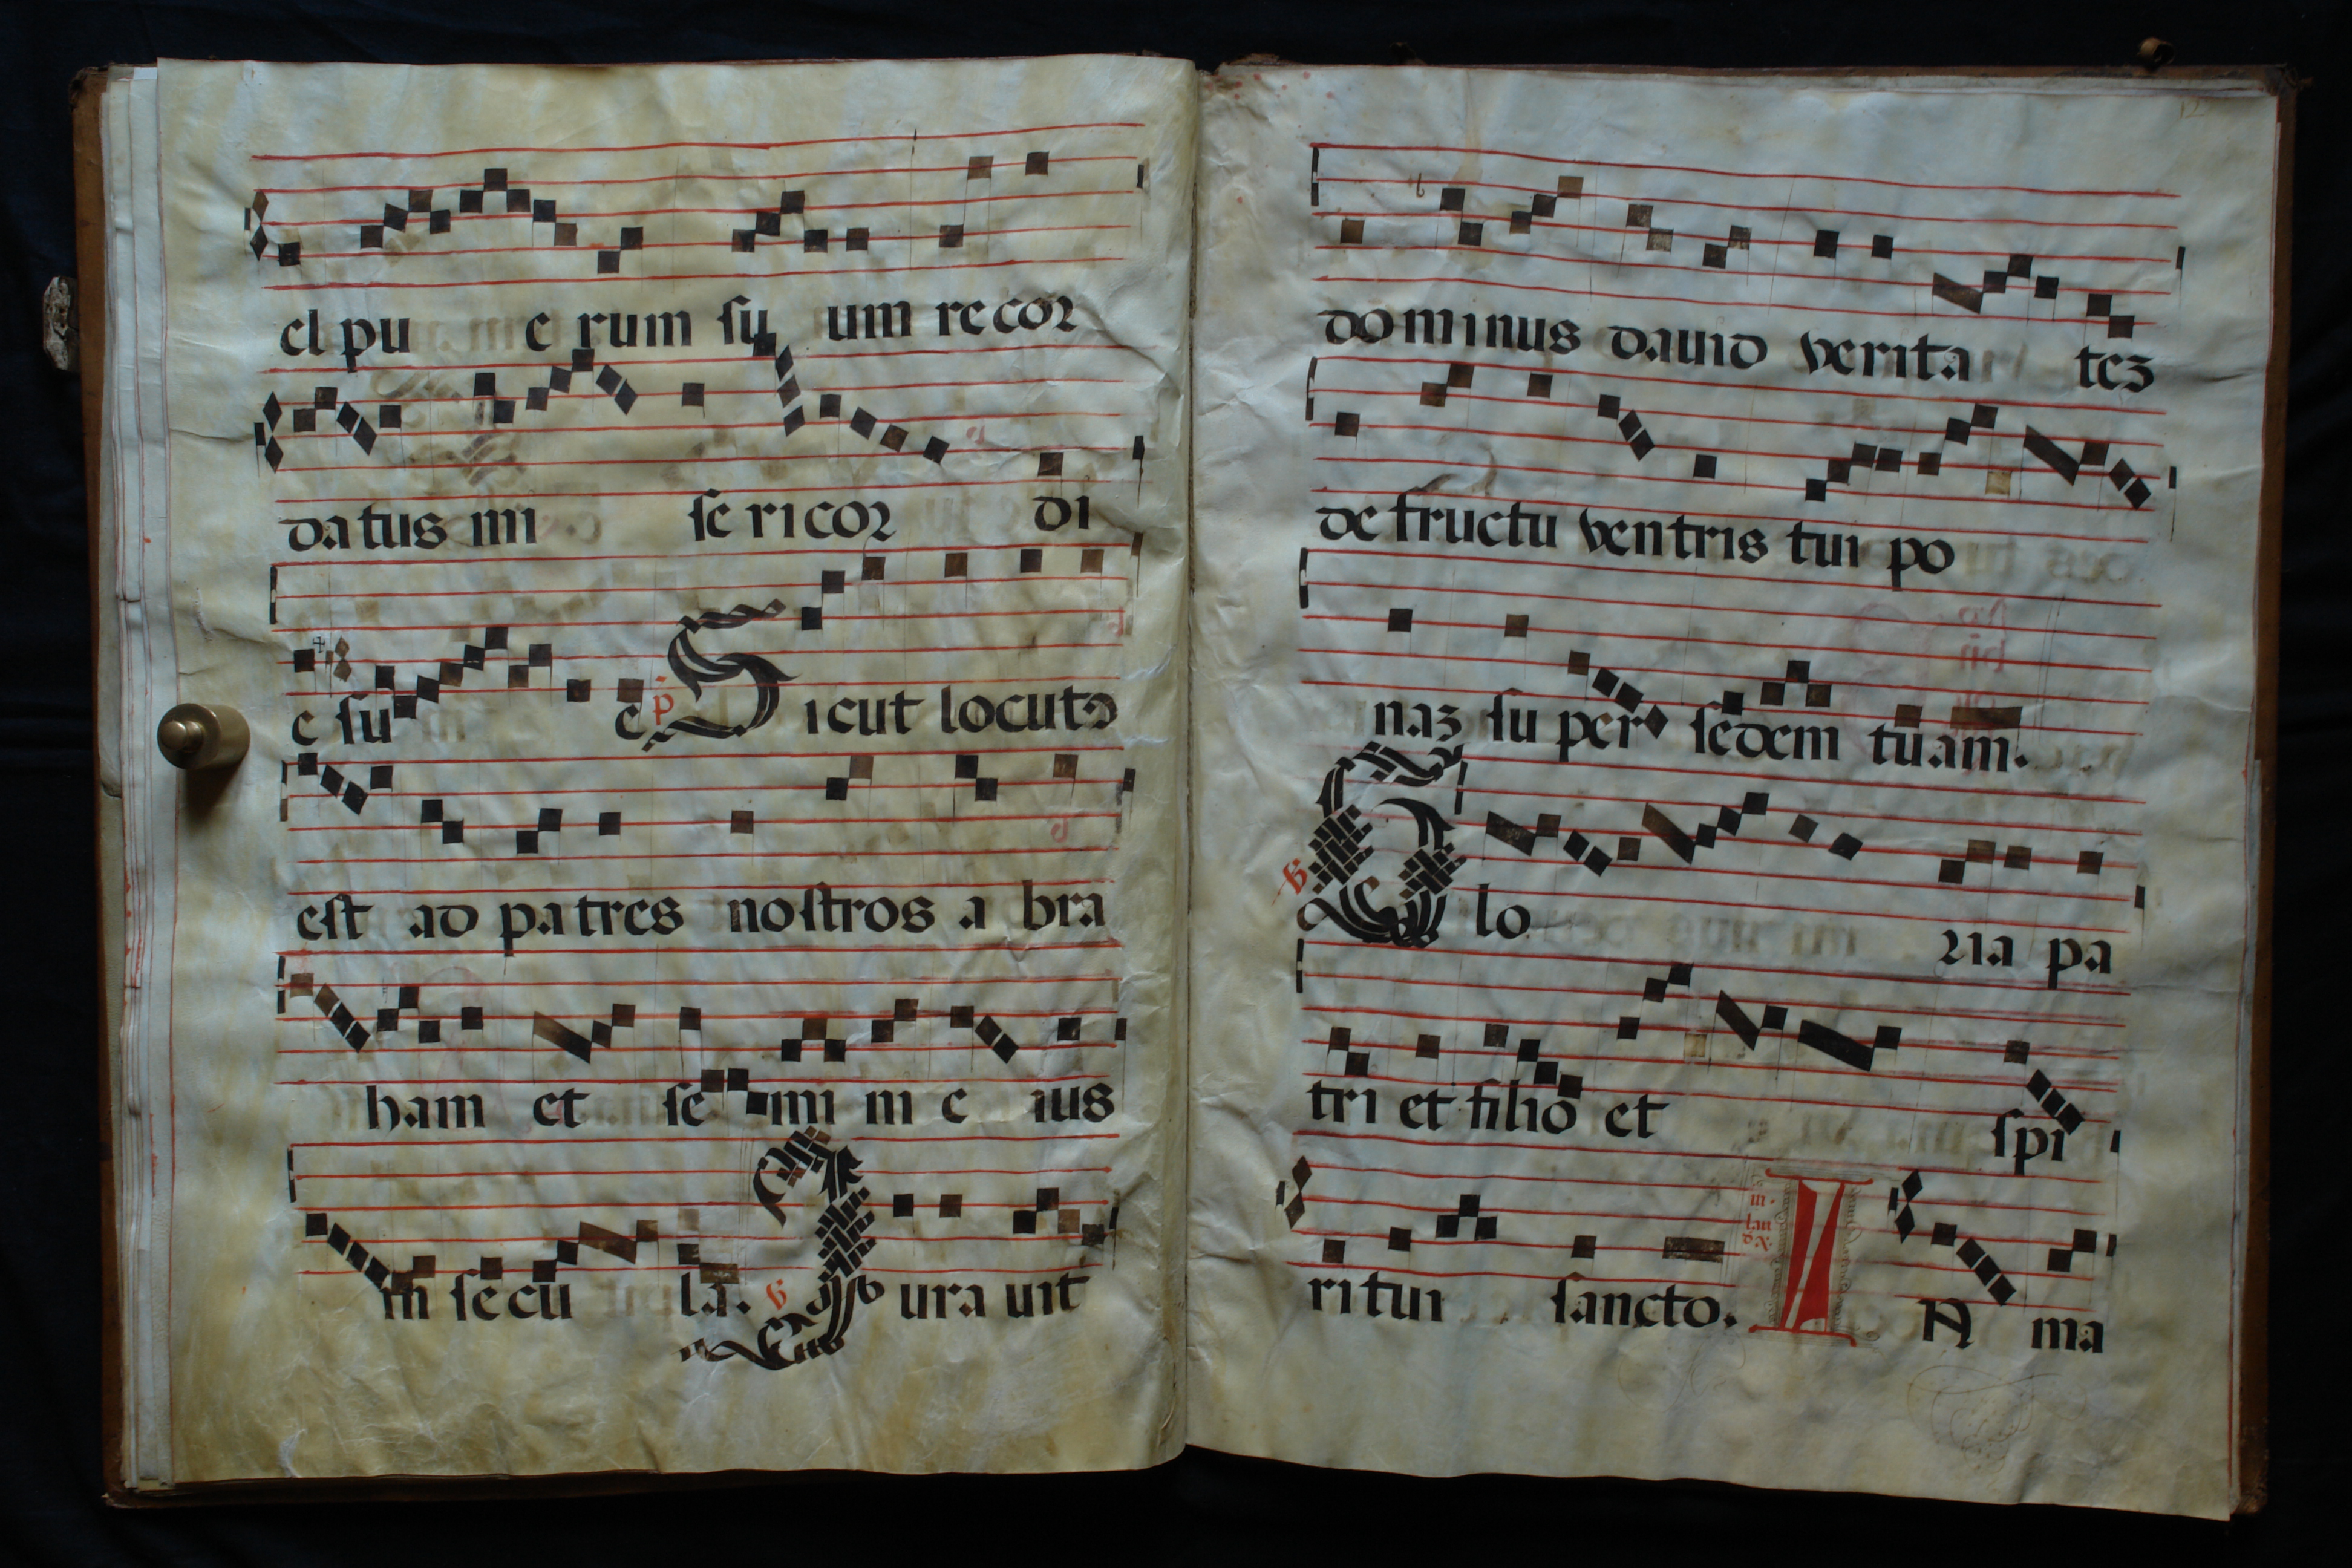 el pu e rum su um re cor
da tus mi se ri cor di
e su e p̄ Sicut locutꝰ
est ad pa tres nostros a bra
ham et se mi ni e ius
in se cu la. ℣ Jura uit
dominus dauid verita teꝫ
de fructu ventris tui po
naꝫ su per sedem tuam.
℣ Glo ria pa
tri et filio et spi
ritui sancto. in lau I N ma